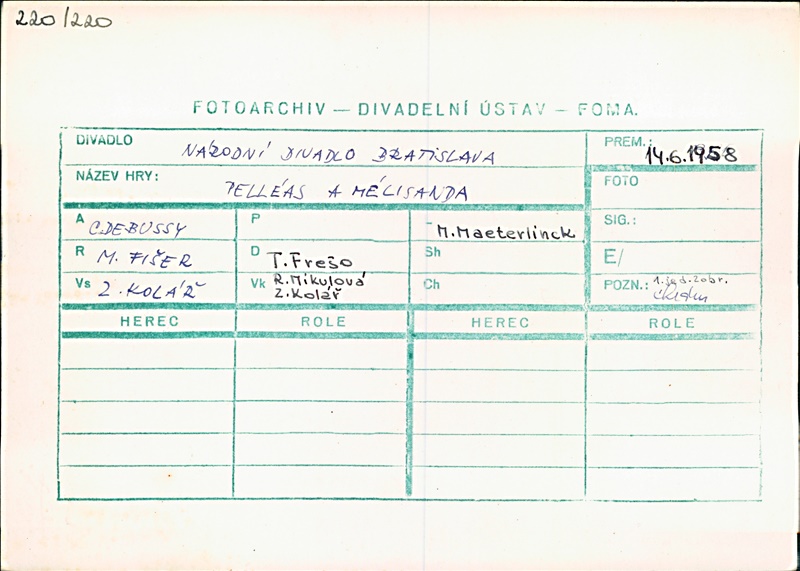 220/220
FOTOARCHIV — DIVADELNÍ ÚSTAV — FOMA.
DIVADLO NÁRODNÍ DIVADLO BRATISLAVA PREM.: 14.6.1958
NÁZEV HRY: PELLÉAS A MÉLISANDA FOTO
A C. DEBUSSY P M. Maeterlinck SIG.:
R M. FIŠER D T. Frešo Sh E/
Vs Z. KOLÁŘ Vk R. Mikulová Ch POZN.: 1. jed. zobr.
Z. Kolář
HEREC ROLE HEREC ROLE